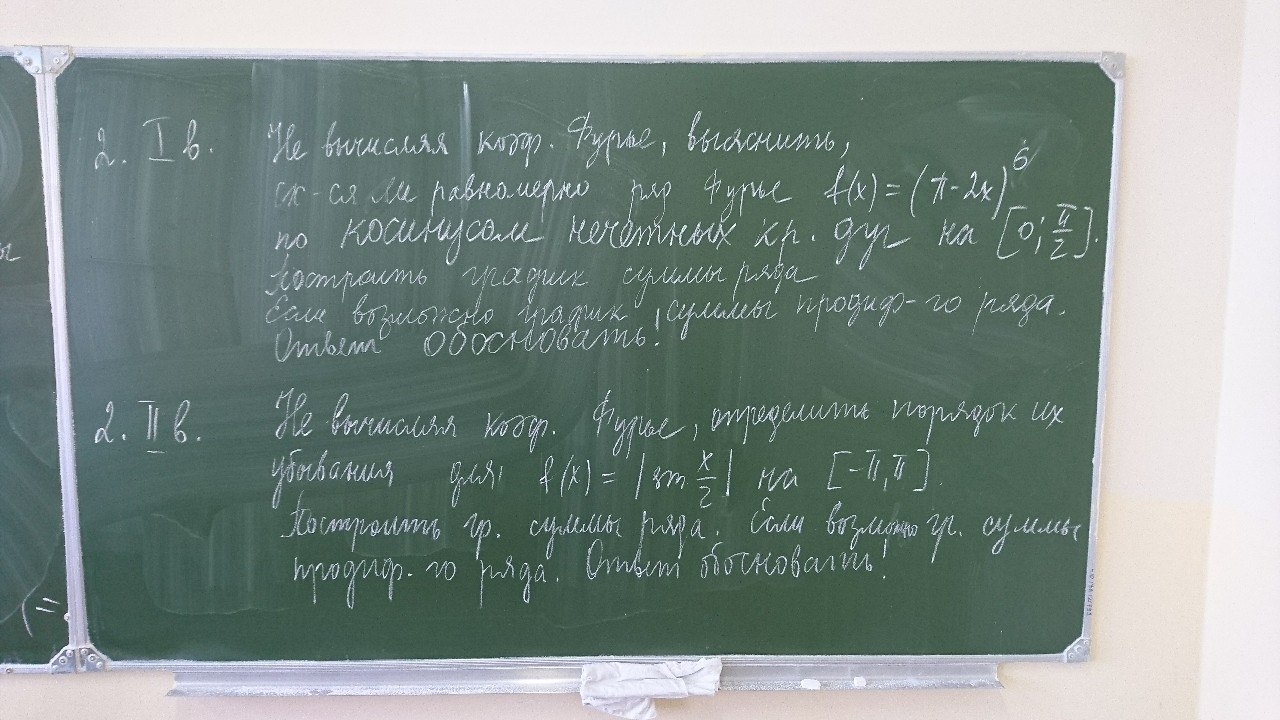 2. I в. Не вычисляя коэф. Фурье, выяснить,
сх-ся ли равномерно ряд Фурье f(x) = (π-2x)^6
по косинусам нечетных кр. дуг на [0; π/2].
Построить график суммы ряда
Если возможно график суммы продиф-го ряда.
Ответ обосновать!
2. II в. Не вычисляя коэф. Фурье, определить порядок их
убывания для f(x) = |sin x/2| на [-π, π].
Построить гр. суммы ряда. Если возможно гр. суммы
продиф-го ряда. Ответ обосновать!
ы
(=